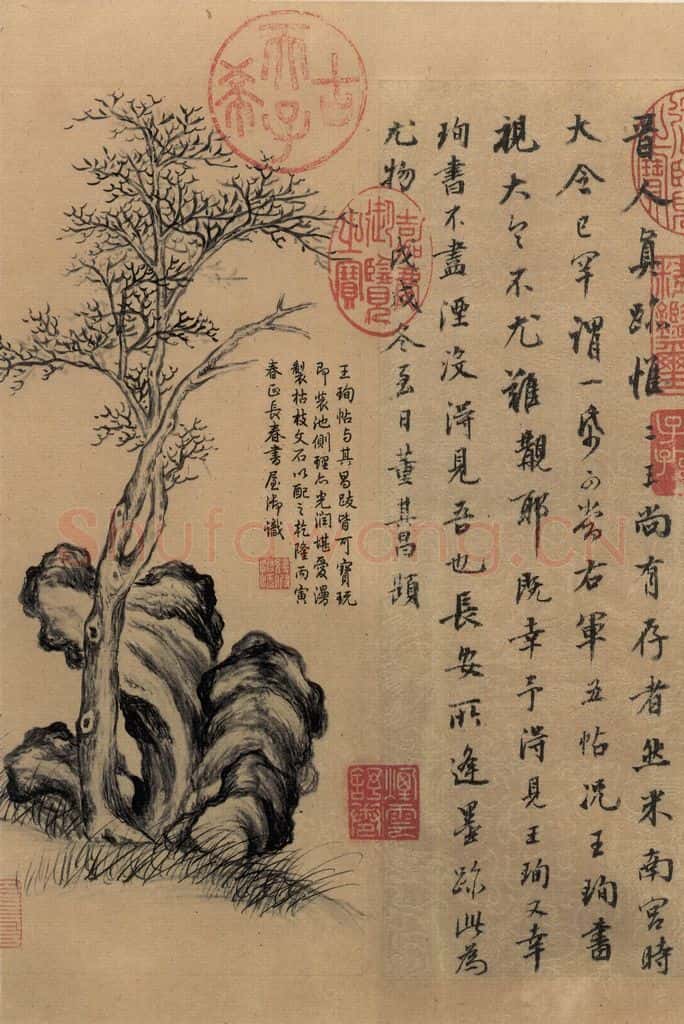 晉人真跡惟二王尚有存者然米南宮時
大令已罕謂一帋可當右軍五帖況王珣書
視大令不尤難覯耶既幸予得見王珣又幸
珣書不盡湮沒得見吾也長安所逢墨跡此為
尤物 戊戌冬至日董其昌題
王珣帖與其昌跋皆可寶玩
即裝池側理亦光潤堪愛漫
製枯枝文石以配之乾隆丙寅
春正長春書屋御識
古希天子
嘉慶御覽之寶